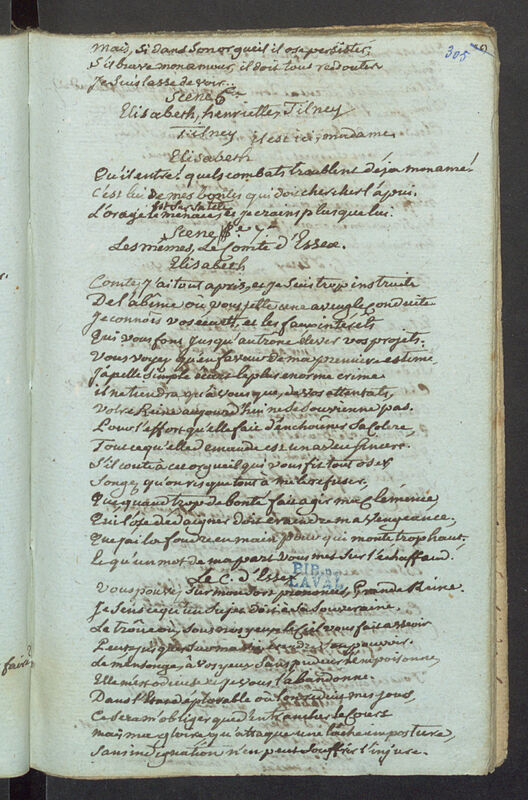 305
mais, si dans son orgueil il ose persister,
S'il brave mon amour, il doit tout redouter
Je suis lasse de voir...
Scene 6e
Elisabeth, henriette, Tilney
Tilney
il est ici, madame,
Elisabeth
Qu'il entre! quels combats troublent déja mon ame!
C'est lui de mes bontés qui doit chercher l'apui.
L'orage le menace, et je crains plus que lui.
Scene 7e
Les mêmes, Le Comte d'Essex.
Elisabeth
Comte, j'ai tout apris, et je suis trop instruite
De l'abime où vous jette une aveugle conduite
Je connois vos écarts, et les faux intérêts
Qui vous font jusqu'au trône élever vos projets.
Vous voyez qu'en faveur de ma premiere estime
J'apelle simple écart le plus énorme crime
il ne tiendra qu'à vous que, de vos attentats,
Votre Reine aujourd'hui ne se souvienne pas.
Pour l'effort qu'elle fait d'enchaîner sa colere,
Tout ce qu'elle demande est un aveu sincere.
S'il coute à cet orgueil qui vous fit tout oser
Songez qu'on risque tout à me le refuser,
Que, quand trop de bonté fait agir ma clémence,
Qui l'ose dédaigner doit craindre ma vengeance,
Que j'ai la foudre en main pour qui monte trop haut,
Et qu'un mot de ma part vous met sur l'echaffaud.
BIB. DE
LAVAL
Le C. d'Essex
Vous pouvez sur mon sort prononcer, Grande Reine.
Je sens ce qu'un sujet doit à sa souveraine.
Le trône où, sous vos yeux, le Ciel vous fait asseoir
Le mensonge, à vos yeux sans pudeur l'empoisonne,
Elle m'est odieuse et je vous l'abandonne.
Dans l'état déplorable où sont réduits mes jours,
Ce sera m'obliger que d'en trancher le cours
mais ma gloire qu'attaque une lâche imposture,
Sans indignation n'en peut souffrir l'injure.
faire